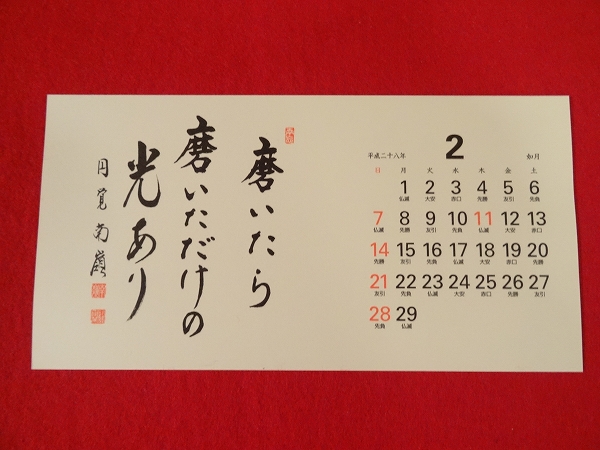 磨いたら
磨いただけの
光あり
円覚 南嶺
平成二十八年 2 如月
日 月 火 水 木 金 土
1 2 3 4 5 6
仏滅 大安 赤口 先勝 友引 先負
7 8 9 10 11 12 13
仏滅 先勝 友引 先負 仏滅 大安 赤口
14 15 16 17 18 19 20
先勝 友引 先負 仏滅 大安 赤口 先勝
21 22 23 24 25 26 27
友引 先負 仏滅 大安 赤口 先勝 友引
28 29
先負 仏滅